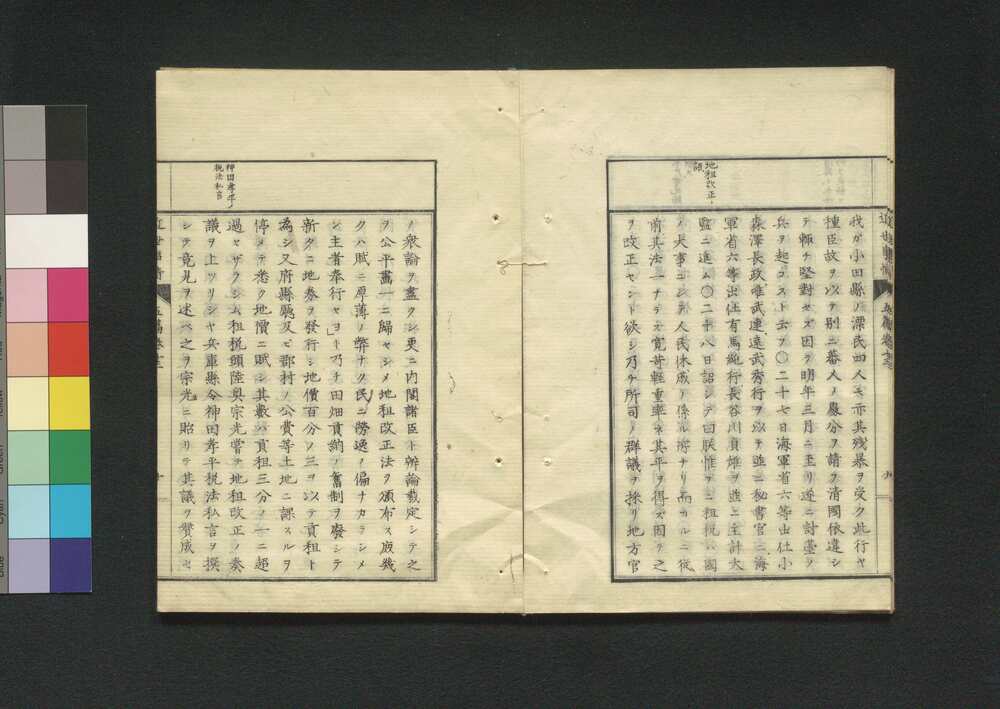 地租改正ノ
議
近世
五篇卷之
我カ小田縣ノ漂民四人モ亦其殘暴ヲ受ク此行ヤ
種臣故ヲ以テ別ニ蕃人ノ處分ヲ請フ清國依違シ
テ輙チ堅對セス因テ明年三月ニ至リ遂ニ討臺ノ
兵ヲ起コスト云フ〇二十七日海軍省六等出仕小
森澤長政唯武連遠武秀行ヲ以テ並ニ秘書官ニ海
軍省六等出仕有馬純行長谷川貞雄ヲ並ニ主計大
監ニ進ム〇二十八日詔シテ曰朕惟フニ租税ハ國
ノ大事ニシテ人民休戚ノ係ル所ナリ而カルニ從
前其法一ナラス寛苛輕重率ネ其平ヲ得ス因テ之
ヲ改正セント欲シ乃チ所司ノ群議ヲ採リ地方官
神田孝平ノ
税法私言
ノ衆論ヲ盡クシ更ニ内閣諸臣ト辨論裁定シテ之
ヲ公平畫一ニ歸セシメ地租改正法ヲ頒布ス庻幾
クハ賦ニ厚薄ノ弊ナク民ニ勞逸ノ偏ナカラシメ
ン主者奉行セヨト乃チ田畑貢納ノ舊制ヲ廢シテ
新タニ地券ヲ發行シ地價百分ノ三ヲ以テ貢租ト
為シ又府縣廳及ビ郡村ノ公費等土地ニ課スルヲ
停メテ悉ク地價ニ賦シ其數ハ貢租三分ノ一ニ超
過セザラシム租税頭陸奥宗光嘗テ地租改正ノ奏
議ヲ上ツリシヤ兵庫縣令神田孝平税法私言ヲ撰
シテ意見ヲ述ベ之ヲ宗光ニ貽リテ其議ヲ賛成セ
近世
五篇卷之